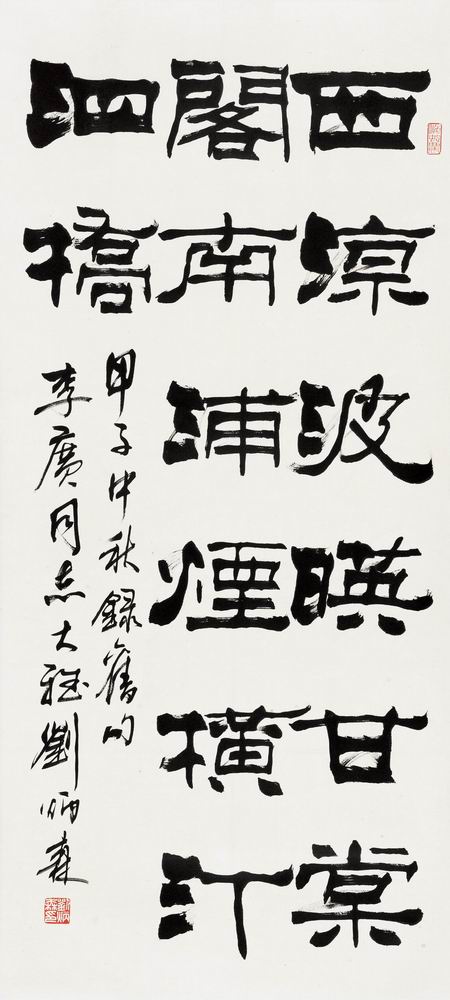 西涼波暎甘棠
閣南浦煙橫汀
泗橋
甲子中秋錄舊句
李廣同志大雅劉炳森